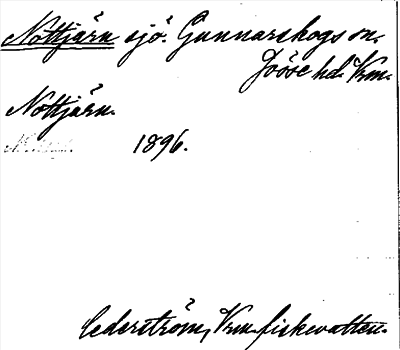 Nottjärn sjö. Gunnarskogs sn.
Jösse hd. Vrm.
Nottjärn.
1896.
Cederström, Vrm. fiskevatten.